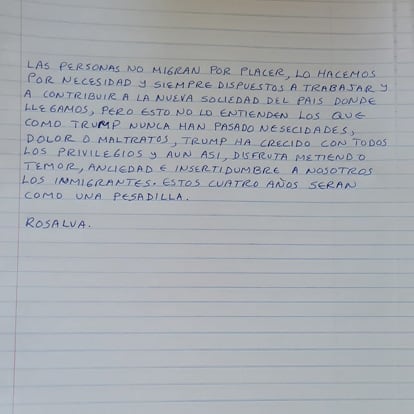 LAS PERSONAS NO MIGRAN POR PLACER, LO HACEMOS
POR NECESIDAD Y SIEMPRE DISPUESTOS A TRABAJAR Y
A CONTRIBUIR A LA NUEVA SOCIEDAD DEL PAIS DONDE
LLEGAMOS, PERO ESTO NO LO ENTIENDEN LOS QUE
COMO TRUMP NUNCA HAN PASADO NESECIDADES,
DOLOR O MALTRATOS, TRUMP HA CRECIDO CON TODOS
LOS PRIVILEGIOS Y AUN ASI, DISFRUTA METIENDO
TEMOR, ANCIEDAD E INSERTIDUMBRE A NOSOTROS
LOS INMIGRANTES. ESTOS CUATRO AÑOS SERAN
COMO UNA PESADILLA.
ROSALVA.